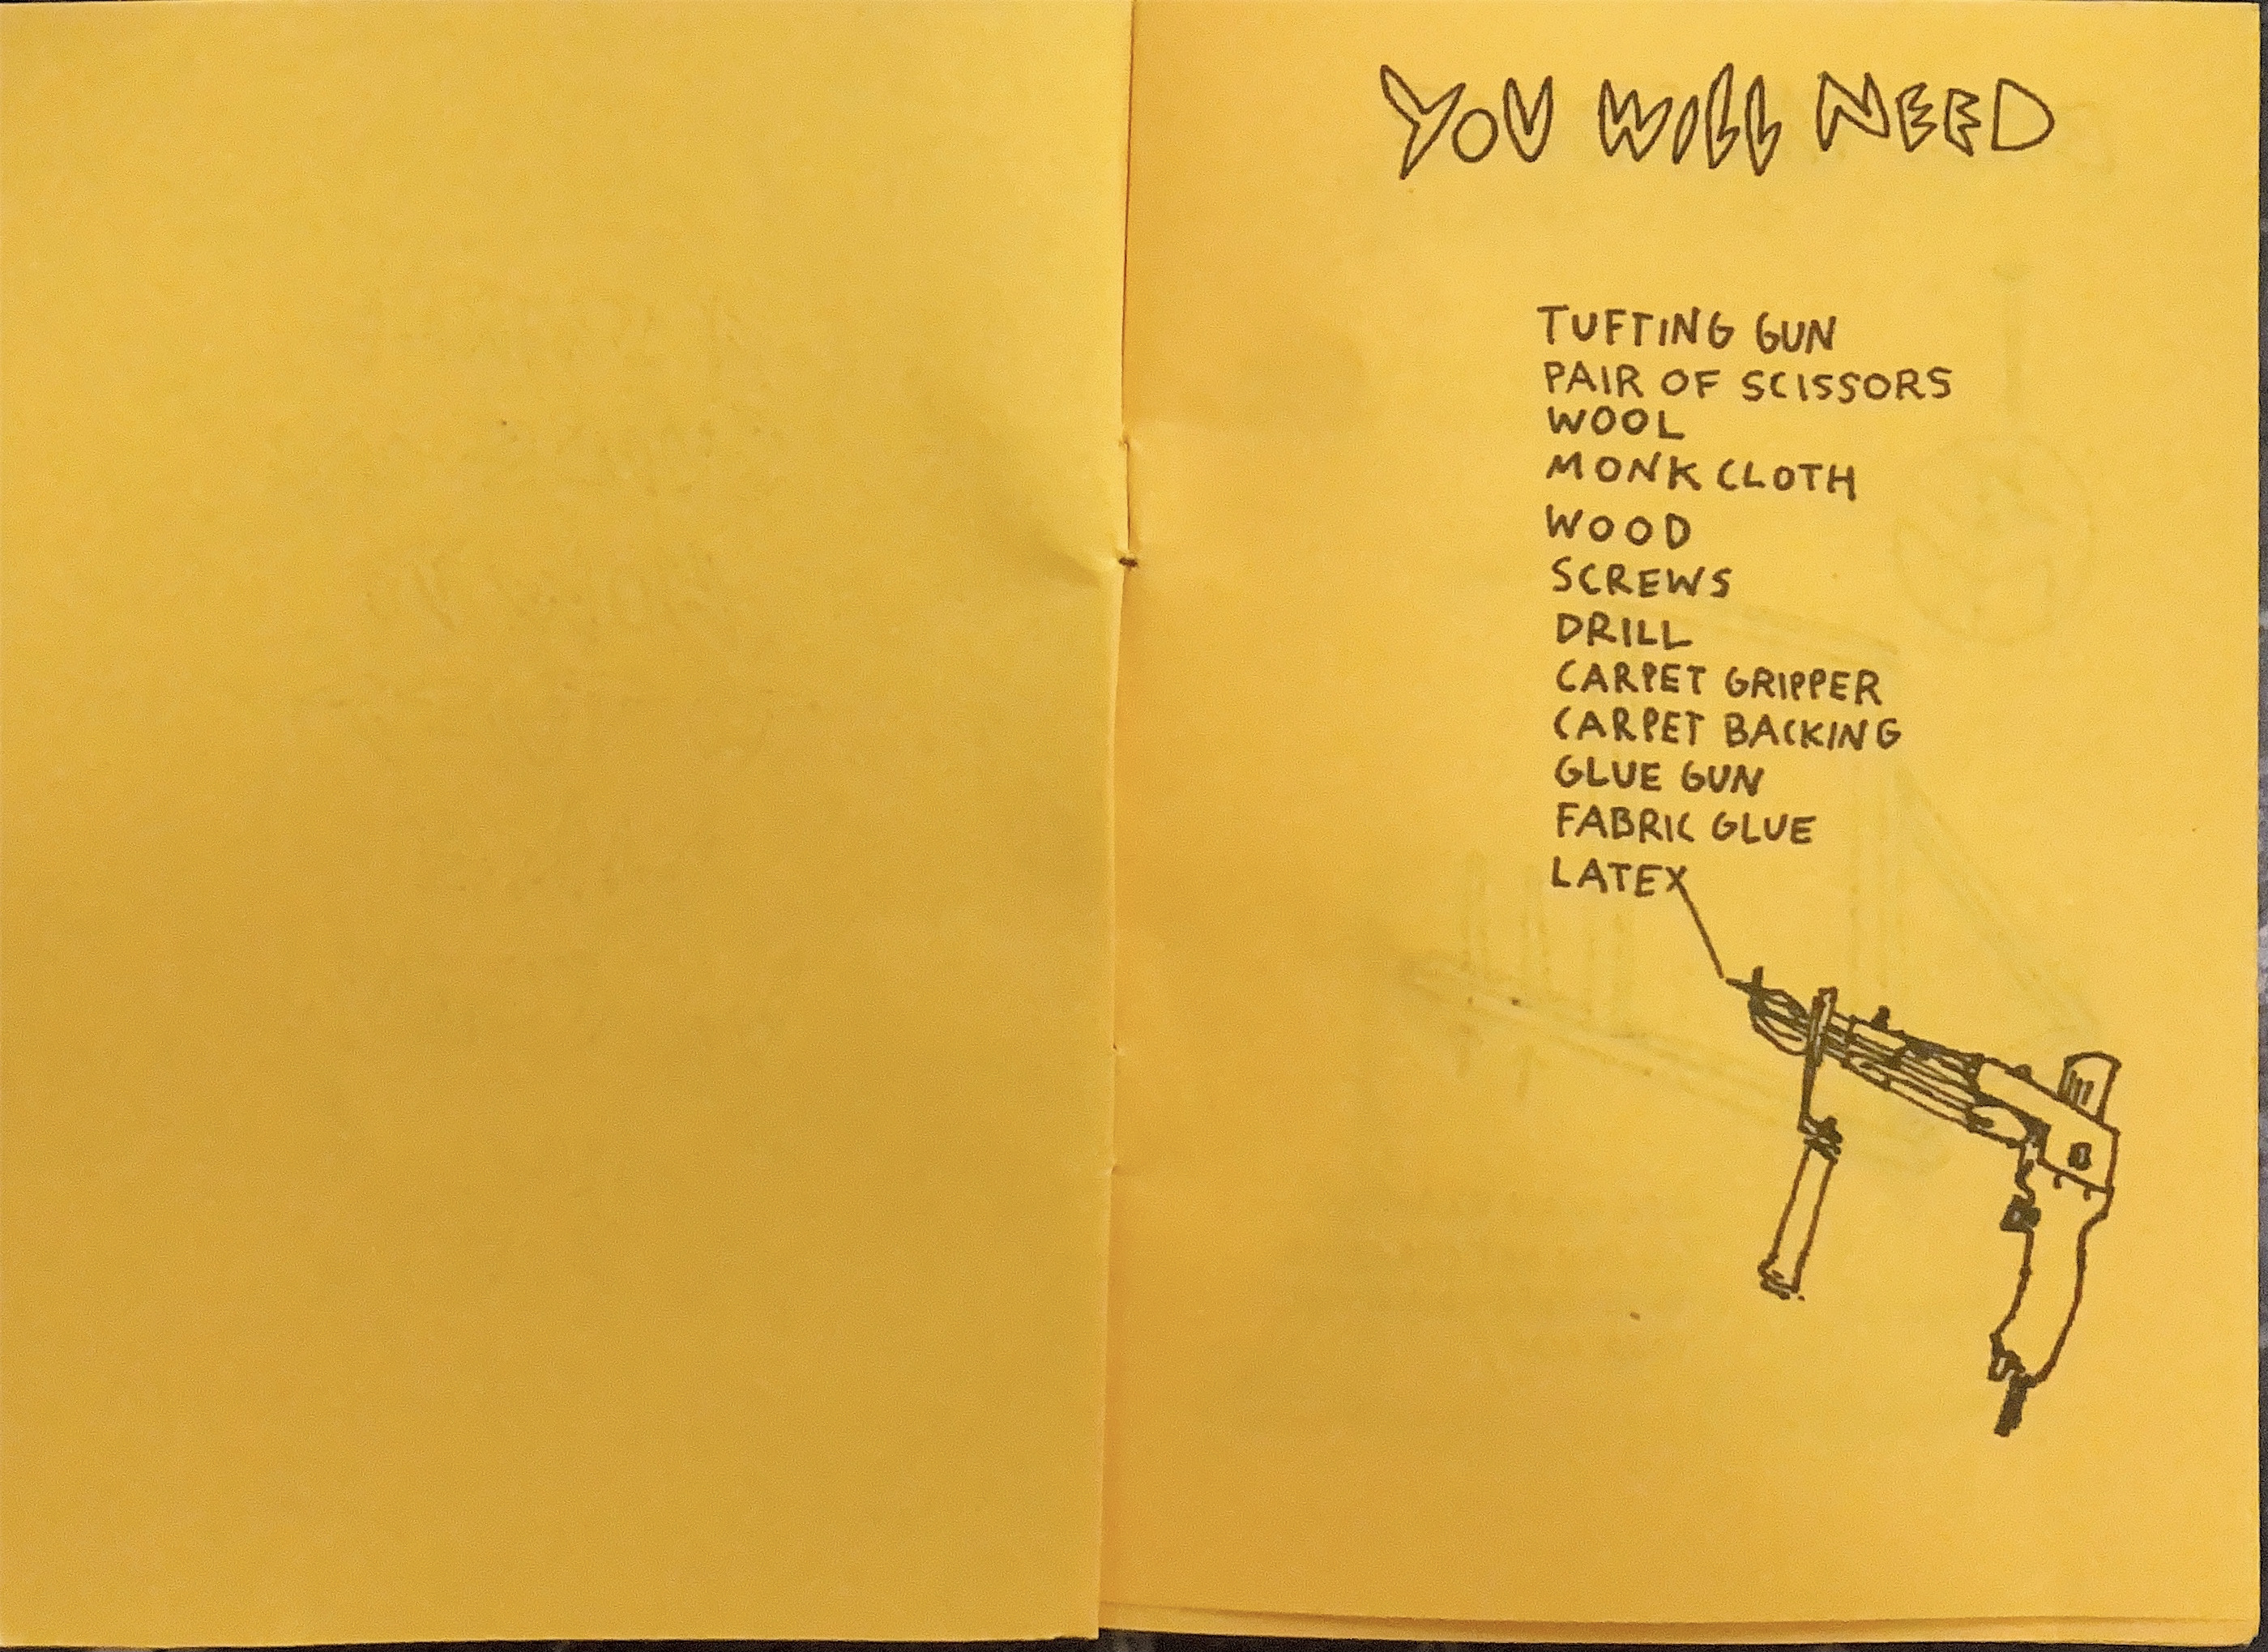 YOU WILL NEED
TUFTING GUN
PAIR OF SCISSORS
WOOL
MONK CLOTH
WOOD
SCREWS
DRILL
CARPET GRIPPER
CARPET BACKING
GLUE GUN
FABRIC GLUE
LATEX